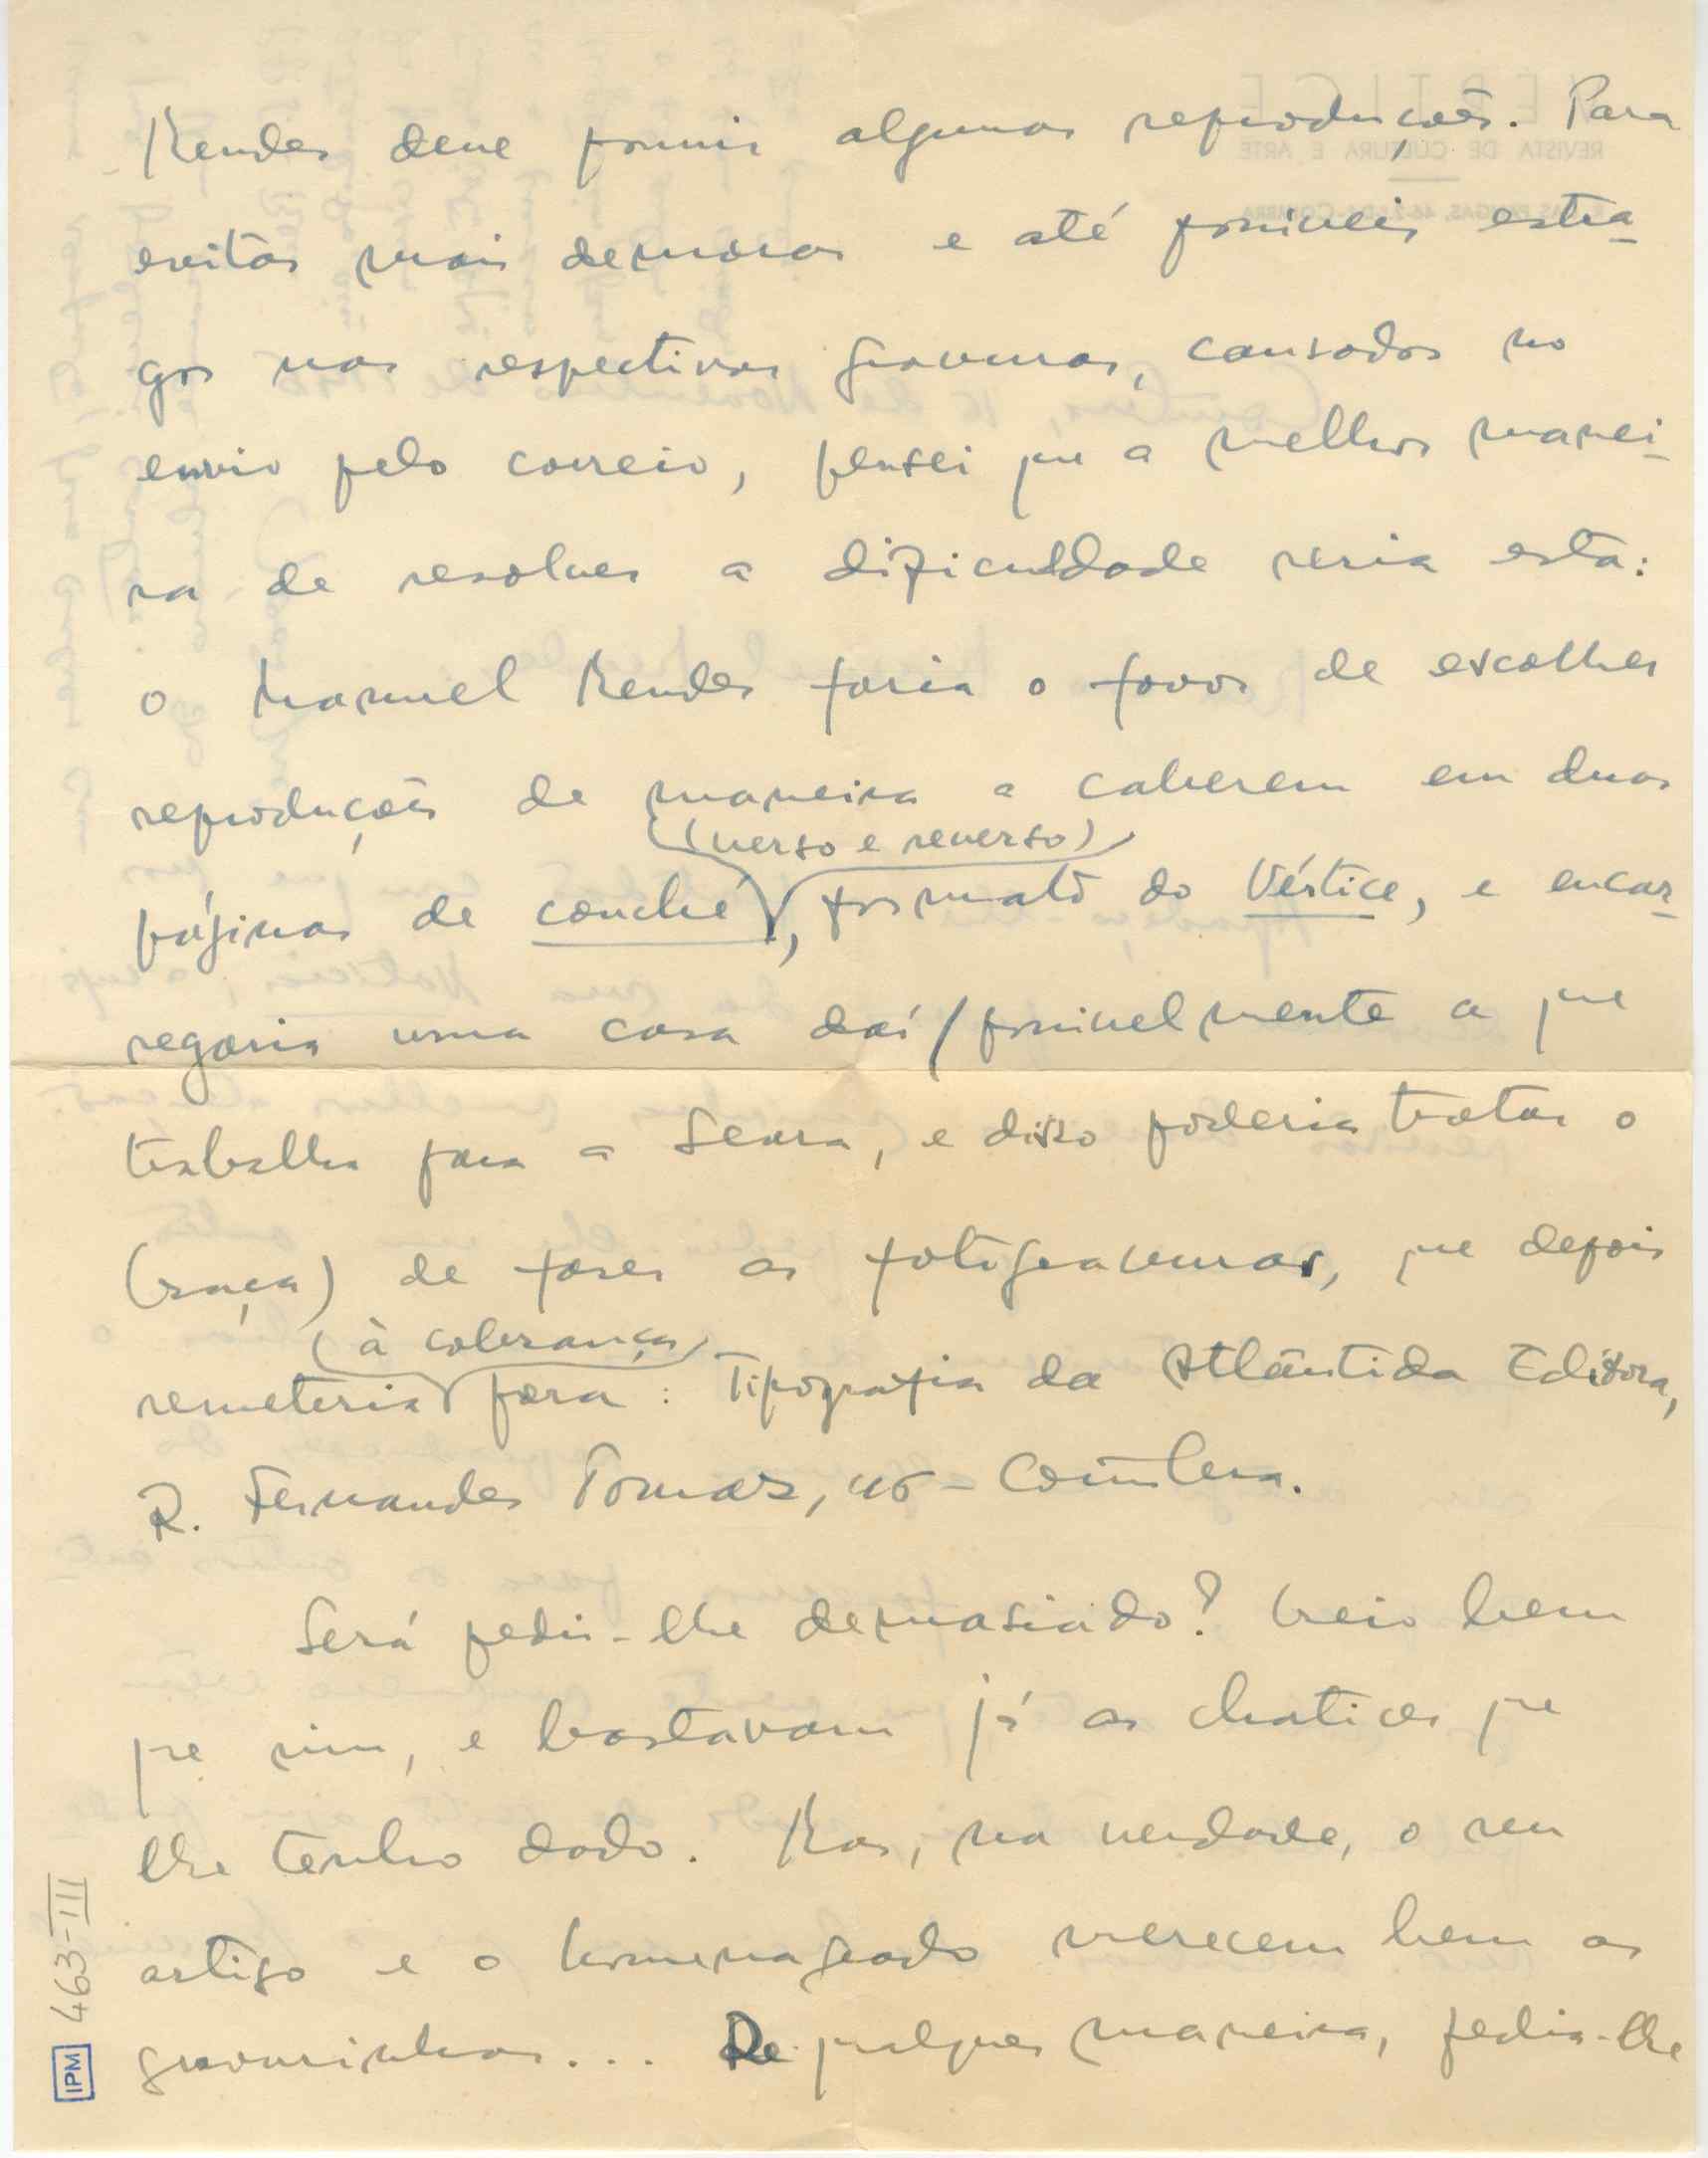 Mendes deve possuir algumas reproduções. Para
evitar mais demoras e até possíveis estra-
gos nas respectivas gravuras, causados no
envio pelo correio, pensei que a melhor manei-
ra de resolver a dificuldade seria esta:
o Manuel Mendes faria o favor de escolher
reproduções de maneira a caberem em duas
(verso e reverso)
páginas de couché, formato do Vértice, e encar-
regaria uma casa daí, possivelmente a que
trabalha para a Seara, e disso poderia tratar o
(Braga) de fazer as fotogravuras, que depois
(à cobrança)
remeteria para: Tipografia da Atlântida Editora,
R. Fernandes Tomaz, 46 - Coimbra.
Será pedir-lhe demasiado? Creio bem
que sim, e bastavam já as chatices que
lhe tenho dado. Mas, na verdade, o seu
artigo e o homenageado merecem bem as
gravurinhas... De qualquer maneira, pedia-lhe
IPM 463-III